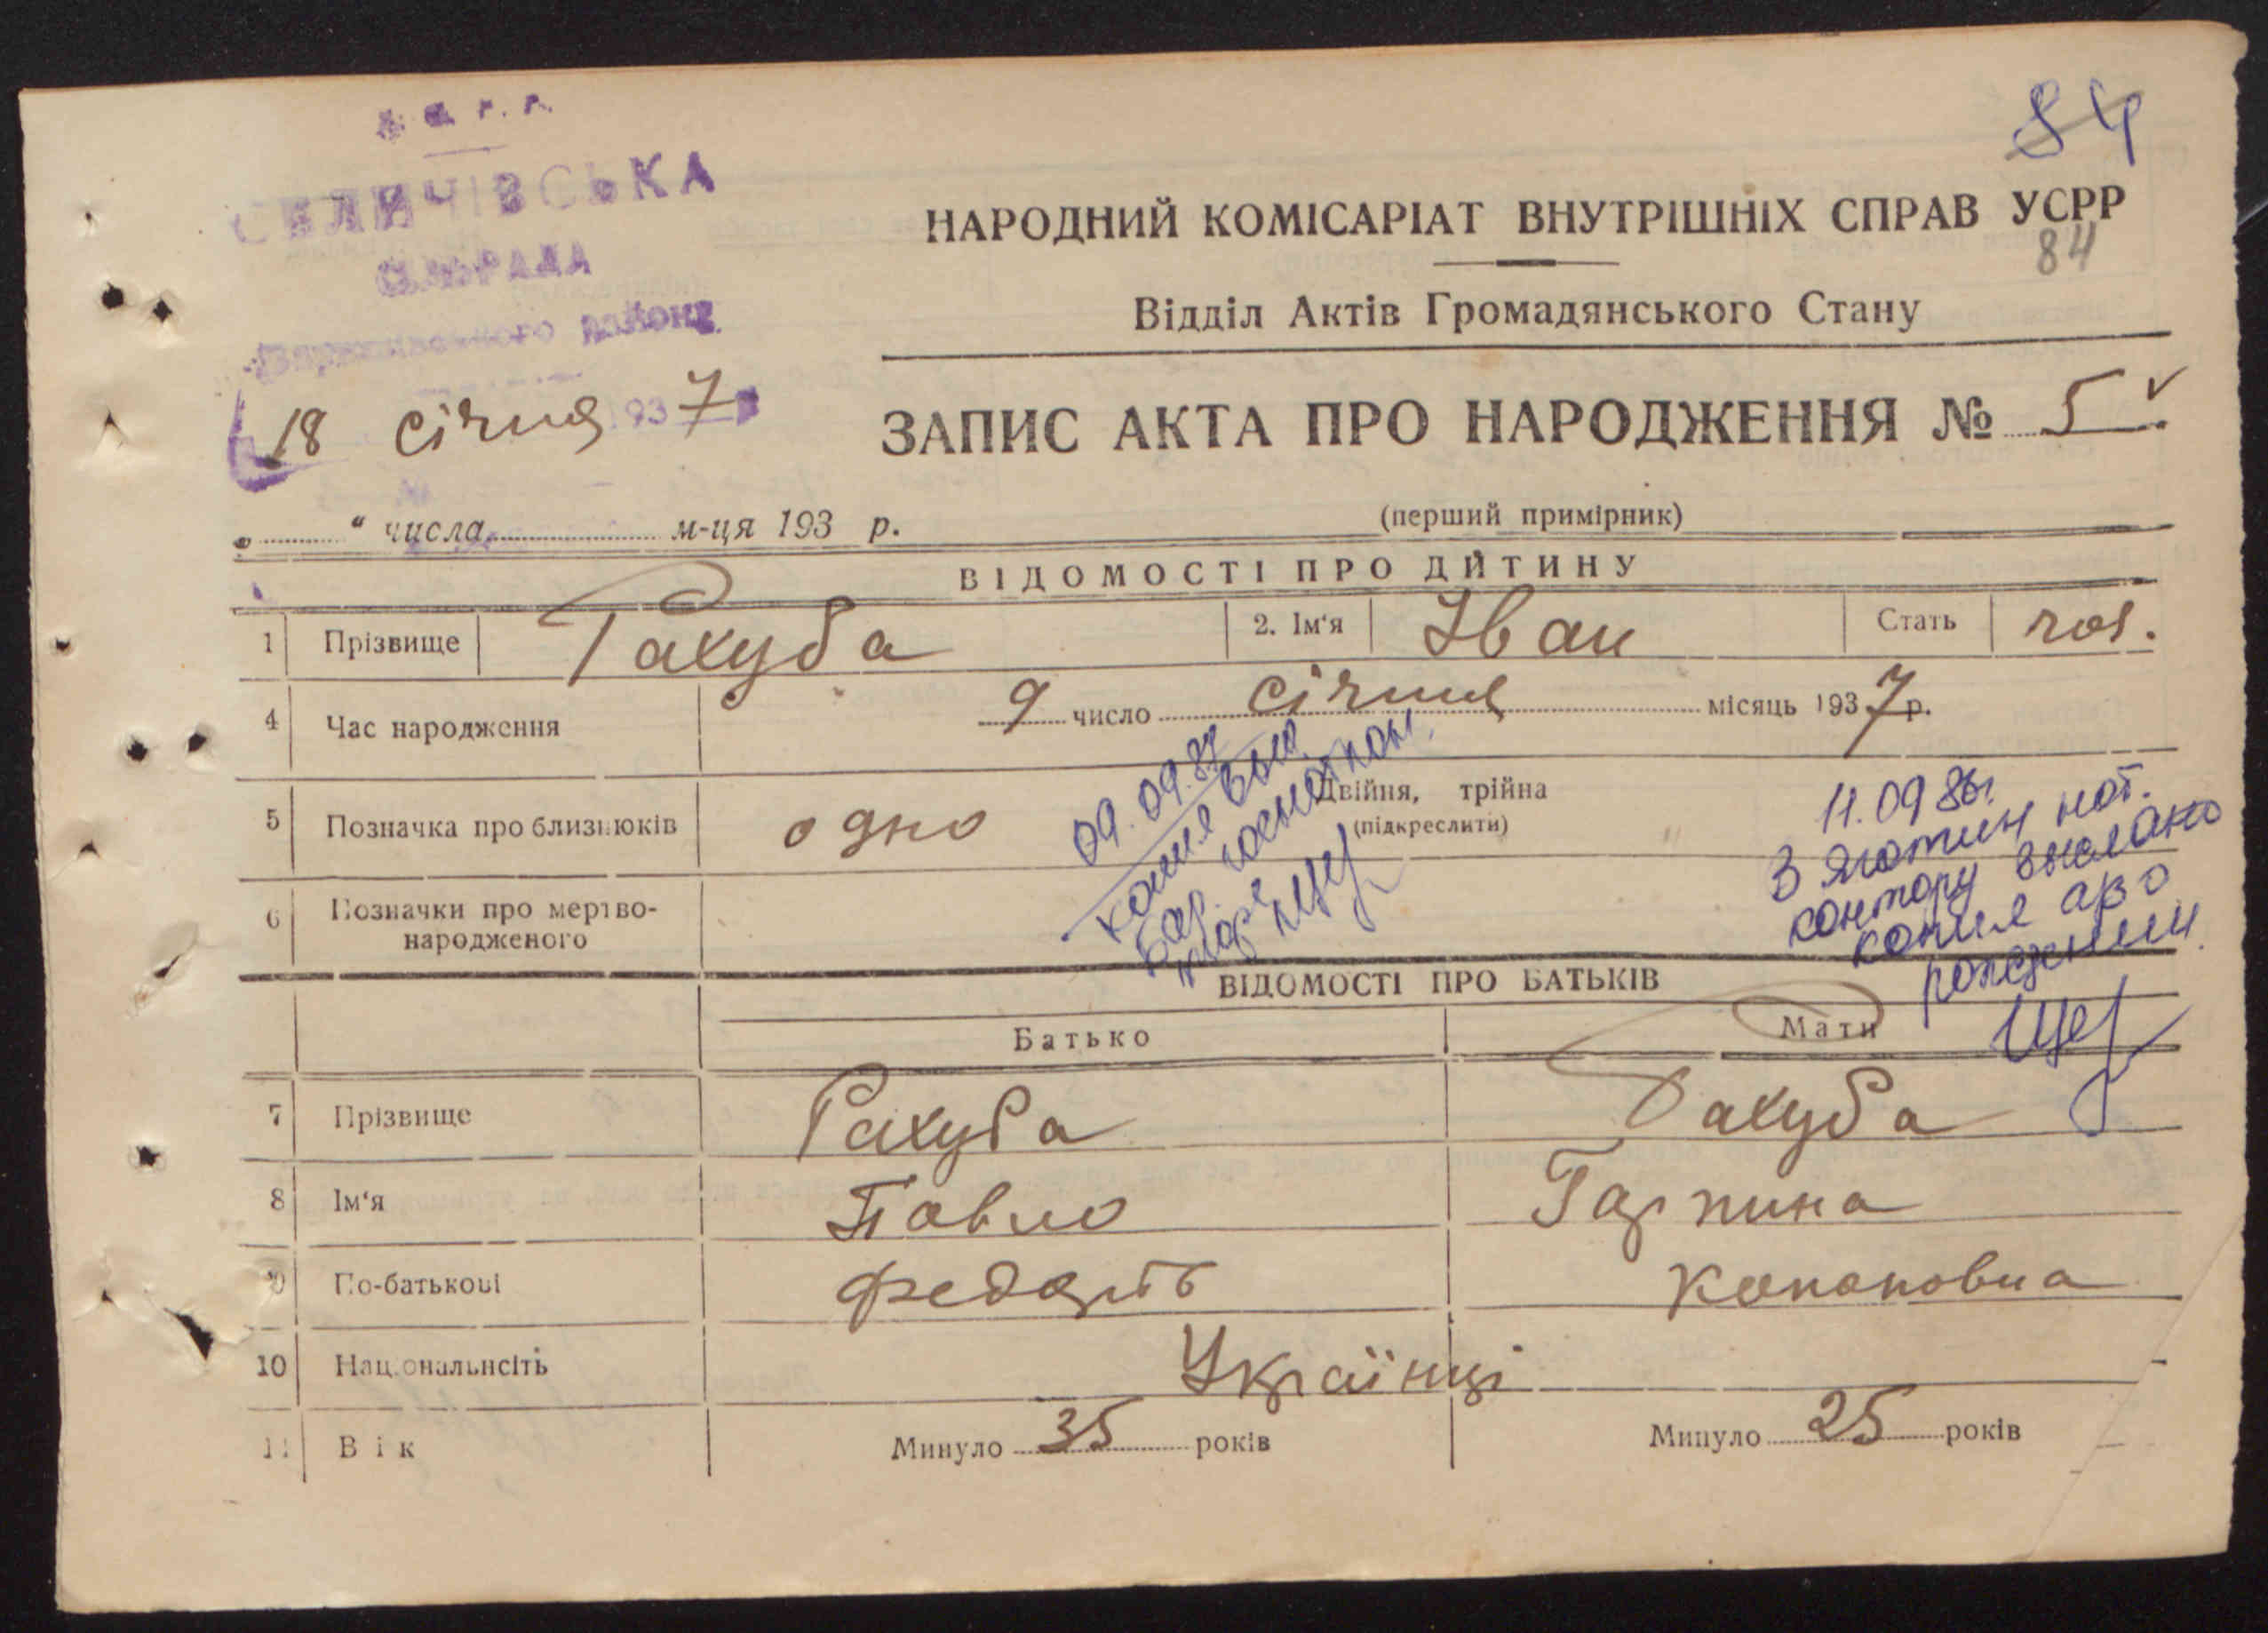 84
СЕЛИЧІВСЬКА
СІЛЬРАДА
району
18 січня 1937
НАРОДНИЙ КОМІСАРІАТ ВНУТРІШНІХ СПРАВ УСРР
84
Відділ Актів Громадянського Стану
ЗАПИС АКТА ПРО НАРОДЖЕННЯ № 5
„ “ числа м-ця 193 р.
(перший примірник)
ВІДОМОСТІ ПРО ДИТИНУ
1 Прізвище Рахуба 2. Ім‘я Іван Стать чол.
4 Час народження 9 число січня місяць 1937 р.
5 Позначка про близнюків одно Двійня, трійна
(підкреслити)
09.09.87
копия
11.09 86г.
В Яготин нот.
контору выслано
копия
рождении
6 Позначки про мертво-
народженого
ВІДОМОСТІ ПРО БАТЬКІВ
Батько Мати
7 Прізвище Рахуба Рахуба
8 Ім‘я Павло Гарпина
9 По-батькові Федорів Кононовна
10 Національнсіть Українці
11 Вік Минуло 35 років Минуло 25 років